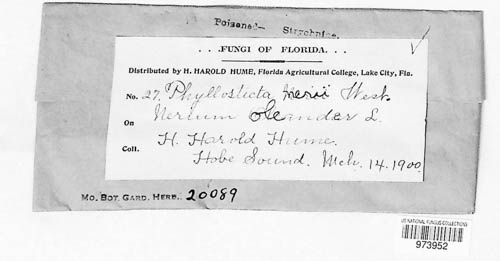 Poisoned - Strychnine.
. . . FUNGI OF FLORIDA. . . .
Distributed by H. HAROLD HUME, Florida Agricultural College, Lake City, Fla.
No. 27. Phyllosticta nerii West.
On Nerium Oleander L.
Coll. H. Harold Hume.
Hobe Sound. Mch. 14. 1900.
MO. BOT. GARD. HERB. 20089
US NATIONAL FUNGUS COLLECTIONS
973952